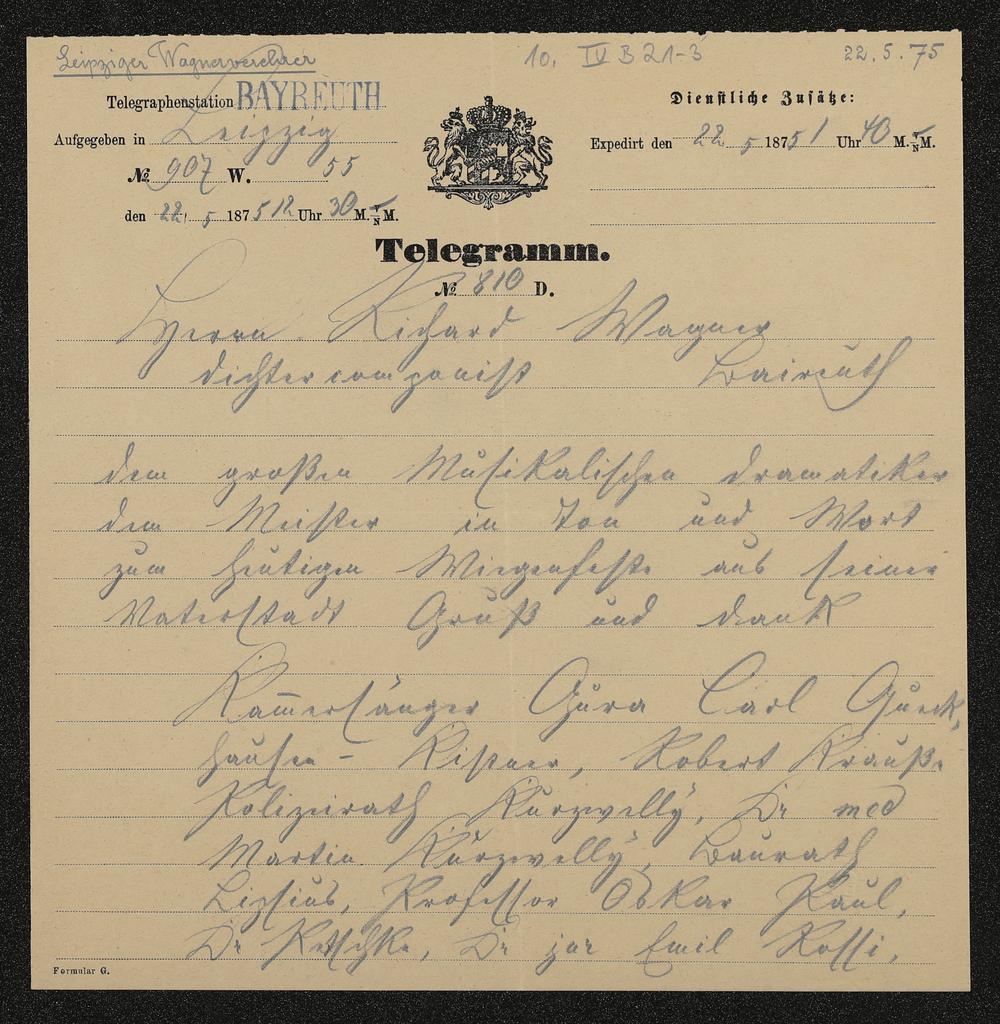 Leipziger Wagnerverehrer 10. IV B 21-3 22.5.75
Telegraphenstation BAYREUTH
Dienstliche Zusätze:
Aufgegeben in Leipzig
Expedirt den 22 5 1875 1 Uhr 40 M. V/N M.
№ 907 W. 55
den 22. 5 1875 12 Uhr 30 M. V/N M.
Telegramm.
№ 810 D.
Herrn Richard Wagner
dichtercomponist Baireuth
dem großen Musikalischen dramatiker
dem Meister in Ton und Wort
zum heutigen Wiegenfeste aus seiner
Vaterstadt Gruß und dank
Kam̅ersänger Gura Carl Gurck,
hausen - Kistner, Robert Krauße
Polizeirath Kurzwelly, Dr med
Martin Kurzwelly, Baurath
Lipsius, Professor Oskar Paul,
Dr Dr jur Emil Rossi,
Formular G.